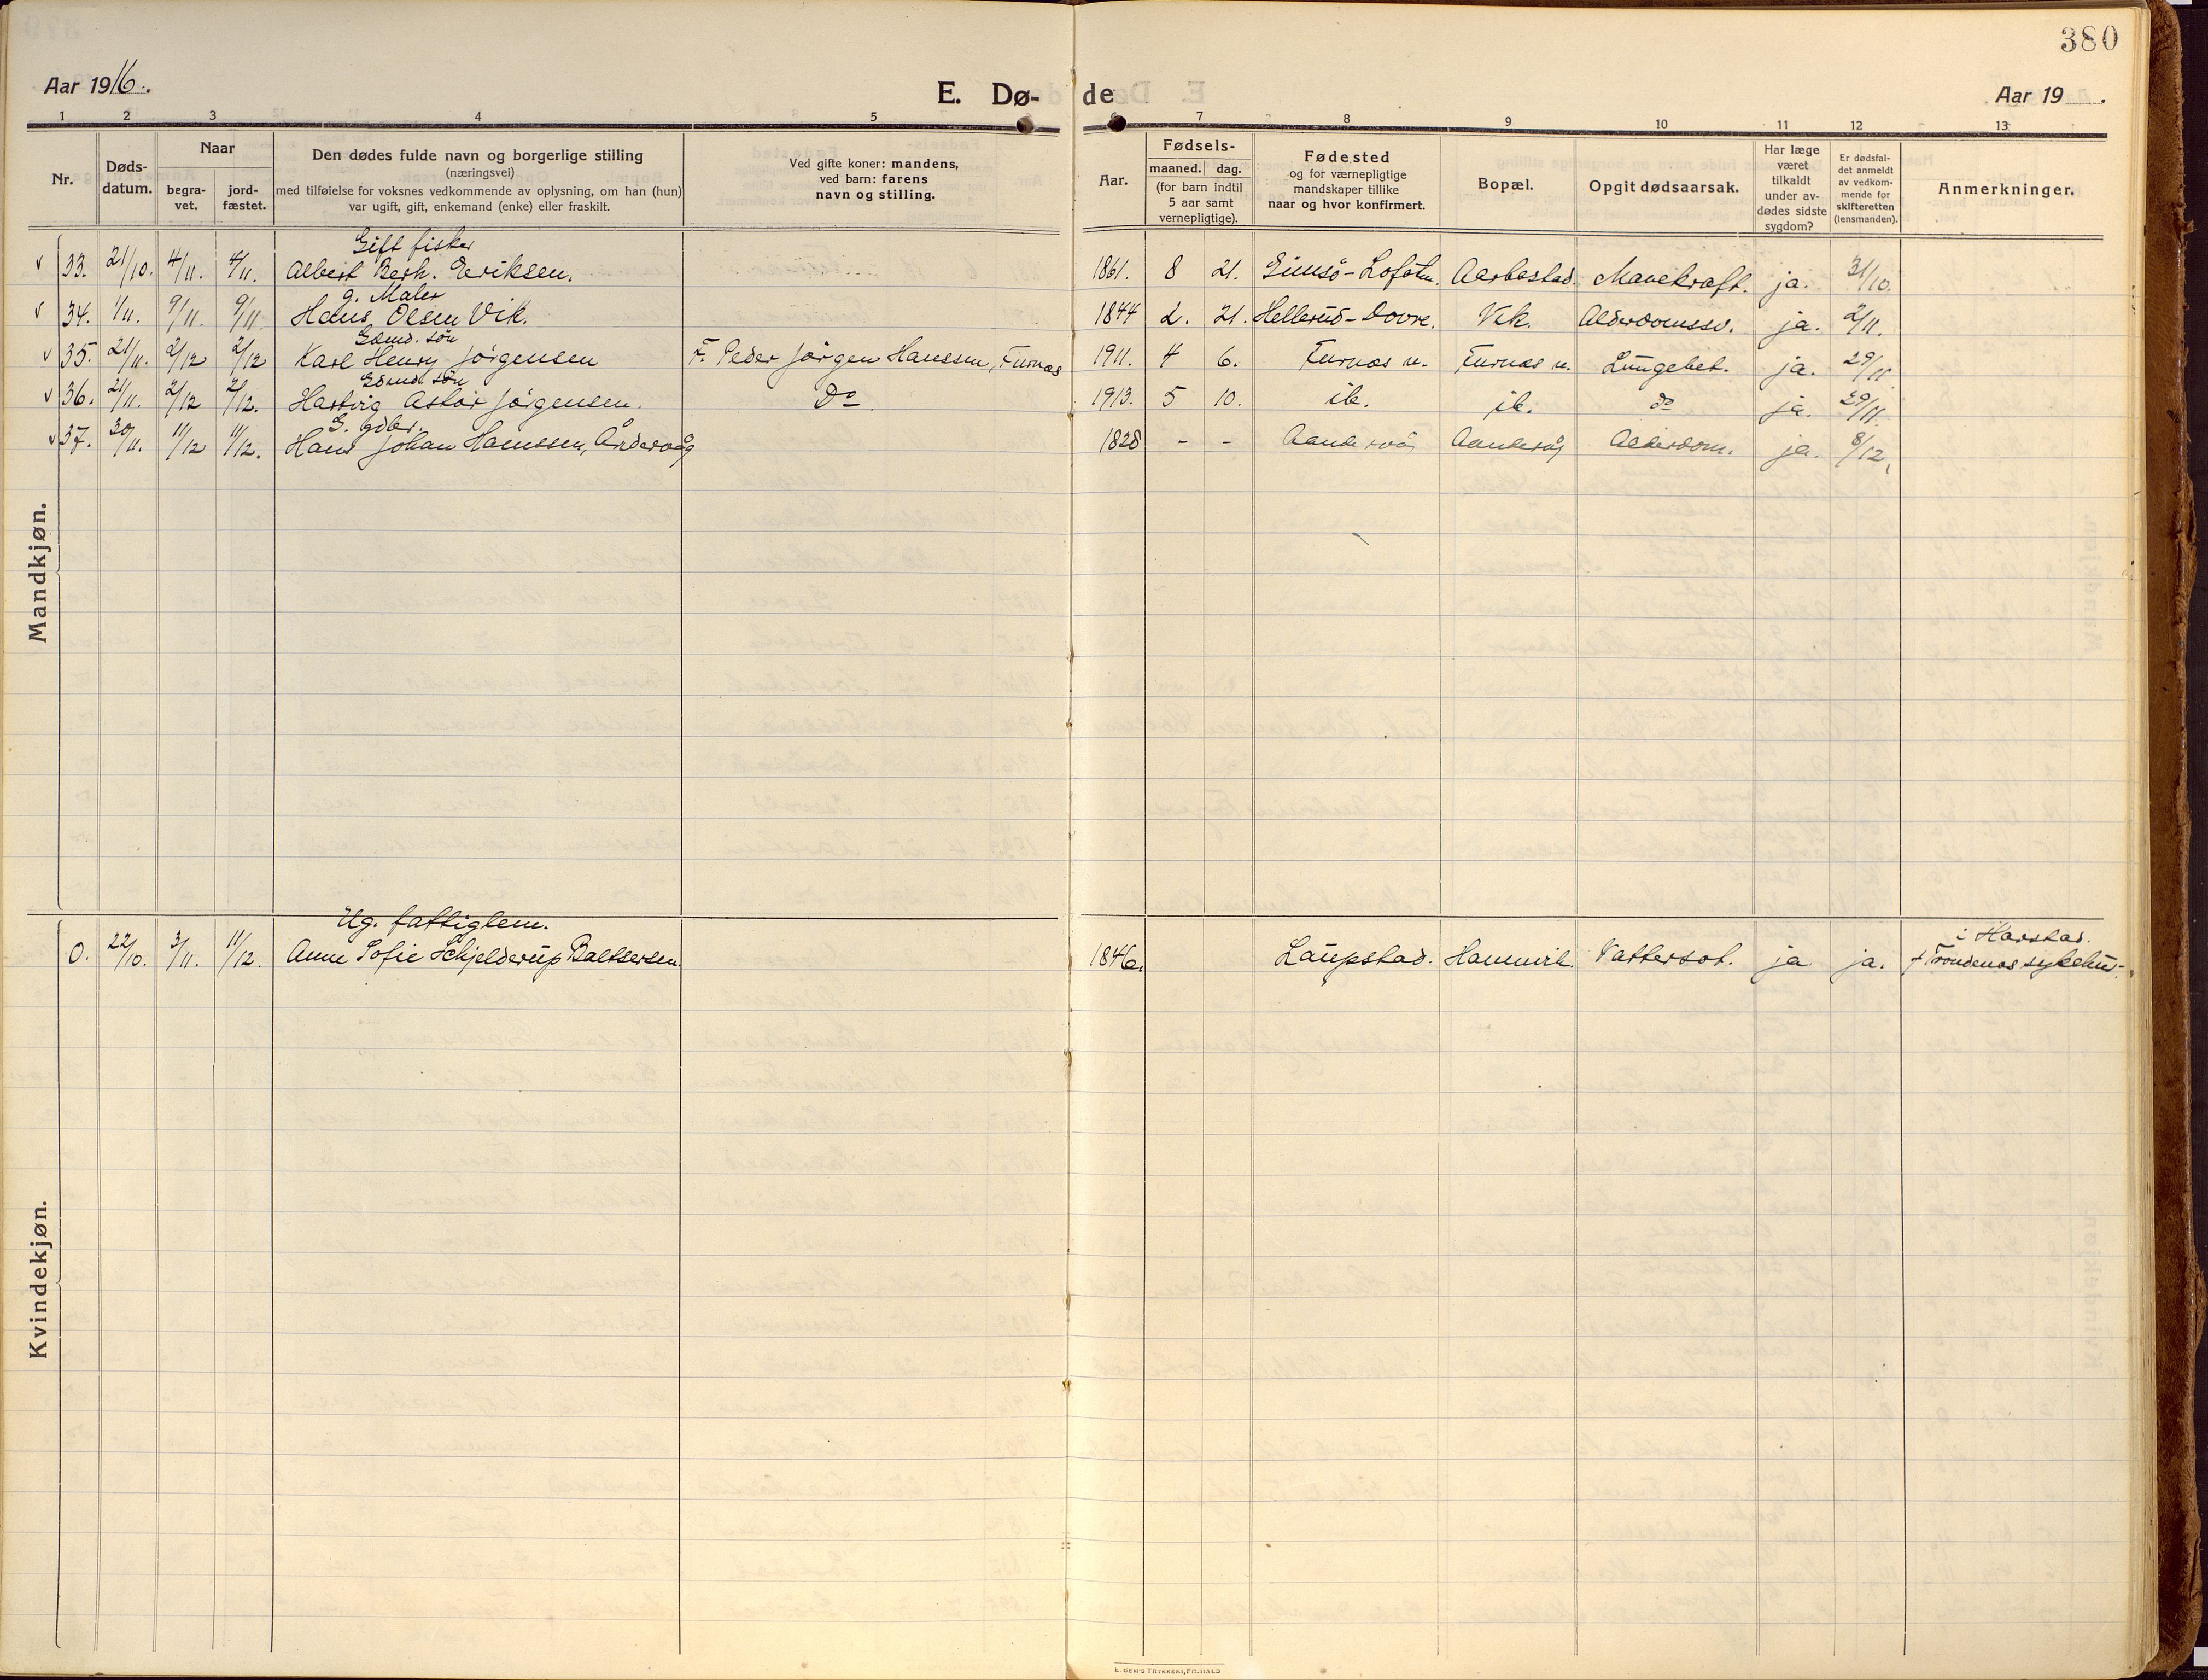 380
Aar 1916.
E. Dø- de
Aar 19 .
1 2 3 4 5 6 7 8 9 10 11 12 13
Nr.
Døds-
datum.
Naar
begra-
vet.
jord-
fæstet.
Den dødes fulde navn og borgerlige stilling
(næringsvei)
med tilføielse for voksnes vedkommende av oplysning, om han (hun)
var ugift, gift, enkemand (enke) eller fraskilt.
Ved gifte koner: mandens,
ved barn: farens
navn og stilling.
Aar.
Fødsels-
maaned. dag.
(for barn indtil
5 aar samt
vernepligtige).
Fødested
og for værnepligtige
mandskaper tillike
naar og hvor konfirmert.
Bopæl.
Opgit dødsaarsak.
Har læge
været
tilkaldt
under av-
dødes sidste
sygdom?
Er dødsfal-
det anmeldt
av vedkom-
mende for
skifteretten
(lensmanden).
Anmerkninger.
Mandkjøn.
Gift fisker
33. 21/10. 4/11. 4/11. Albert Berh. Eriksen. 1861. 8 21. Gimsö-Lofoten. Aarbostad. Mavekraft. ja. 31/10.
g. Maler
34. 1/11. 9/11. 9/11 Hans Olsen Vik. 1844 2. 21. Hellerud-Dovre. Vik. Alderdomssv. ja. 2/11.
Gbmd. sön
35. 21/11. 2/12 2/12 Karl Henry Jörgensen F. Peder Jörgen Hanssen, Furnes 1911. 4 6. Furnes n. Furnes n. Lungebet. ja. 29/11.
Gbmd. sön
36. 21/11. 2/12 2/12. Hartvig Astor Jörgensen. Do 1913. 5 10. ib. ib. do ja. 29/11.
G. gdbr.
37. 30/11. 11/12 11/12. Hans Johan Hanssen, Åndervåg 1828 - - Aandervåg Aandervåg Alderdom. ja. 8/12.
Kvindekjøn.
Ug. fattiglem.
0. 22/10. 3/11. 11/12. Anne Sofie Schjelderup Baltsersen. 1846. Laupstad. Hamnvik. Vattersot. ja ja. i Harstad.
† Trondenes sykehus.
E. SEM'S TRYKKERI, FR.HALD